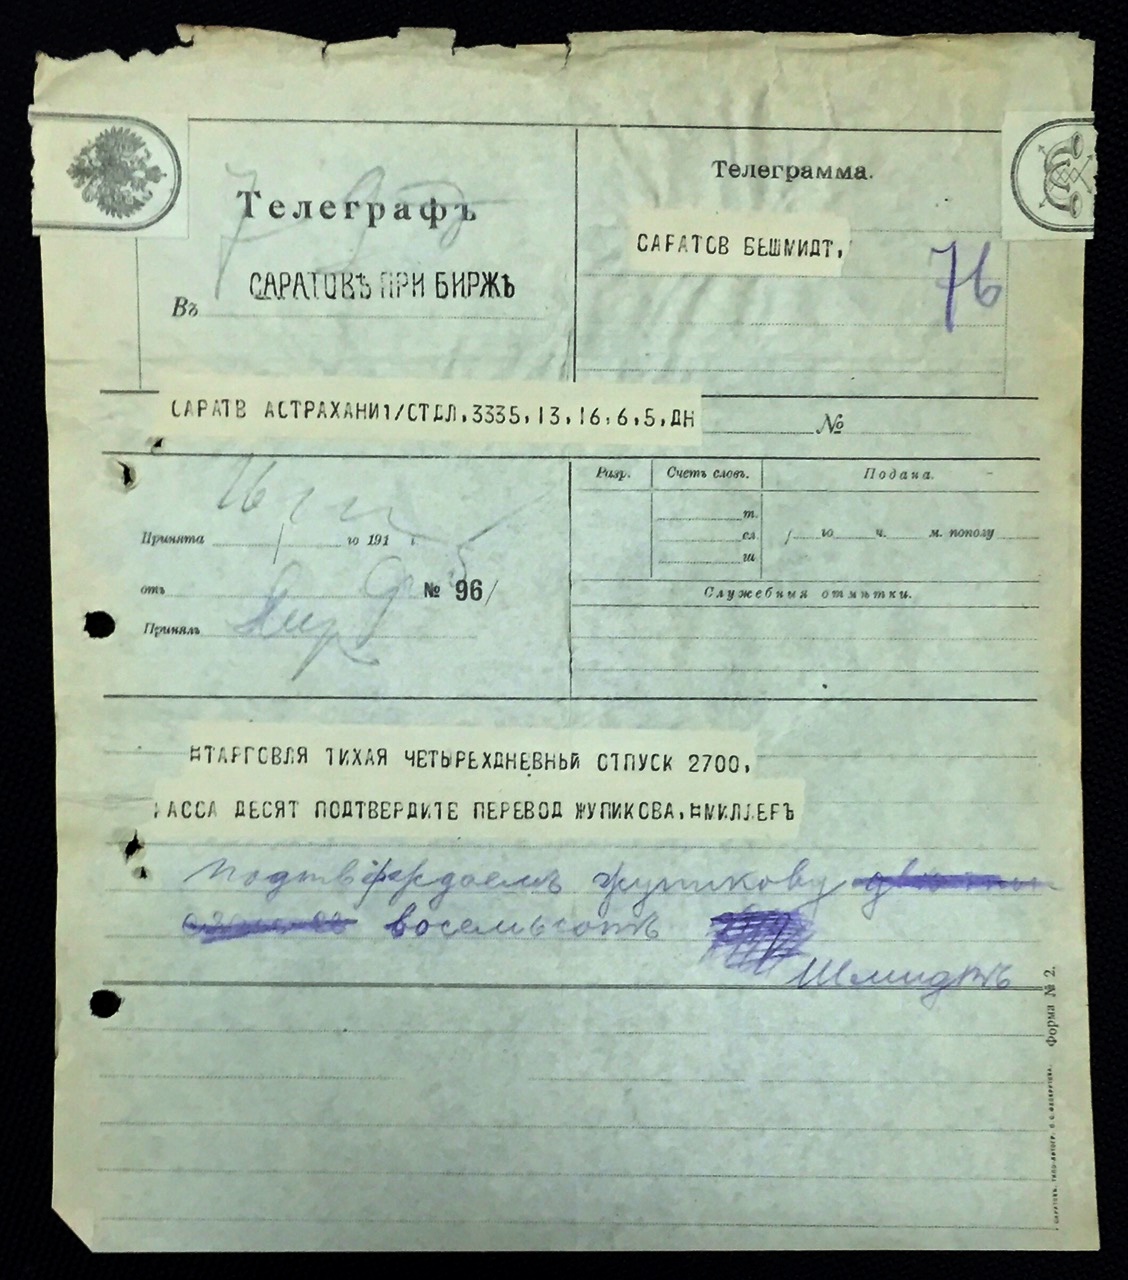 Телеграфъ
Въ САРАТОВѢ ПРИ БИРЖѢ
Телеграмма.
САРАТОВ БЕШМИДТ,
76
САРАТВ АСТРАХАНИ1/СТДЛ,3335,13,16,6,5,ДН
№
Принята го 191 г.
отъ № 96/
Принялъ
Разр. Счетъ словъ. Подана.
т.
сл. го ч. м. пополу
ш
Служебныя отмѣтки.
ТАРГОВЛЯ ТИХАЯ ЧЕТЫРЕХДНЕВНЫЙ ОТПУСК 2700,
КАССА ДЕСЯТ ПОДТВЕРДИТЕ ПЕРЕВОД ЖУПИКОВА, МИЛЛЕРЪ
Подтверждаемъ Жупикову
восемьсотъ
Шмидтъ
Форма № 2.